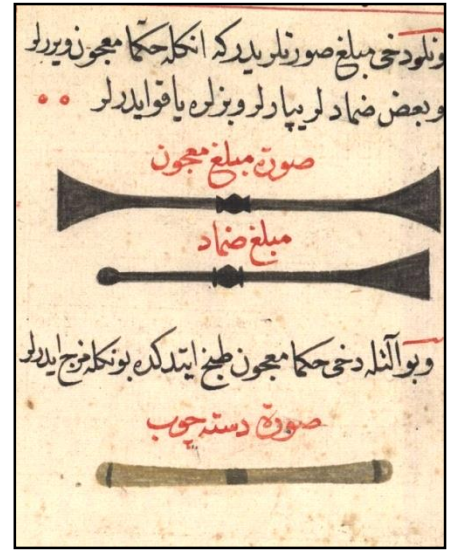 ونلر دخی مبلغ صورتلریدر که انکله حکما معجون ویررلر
وبعض ضماد لر یپارلر وبزلره یاقو ایدرلر
صورة مبلغ معجون
مبلغ ضماد
وبو آلتله دخی حکما معجون طبخ ایتدکده بونکله مزج ایدرلر
صورة دسته چوب